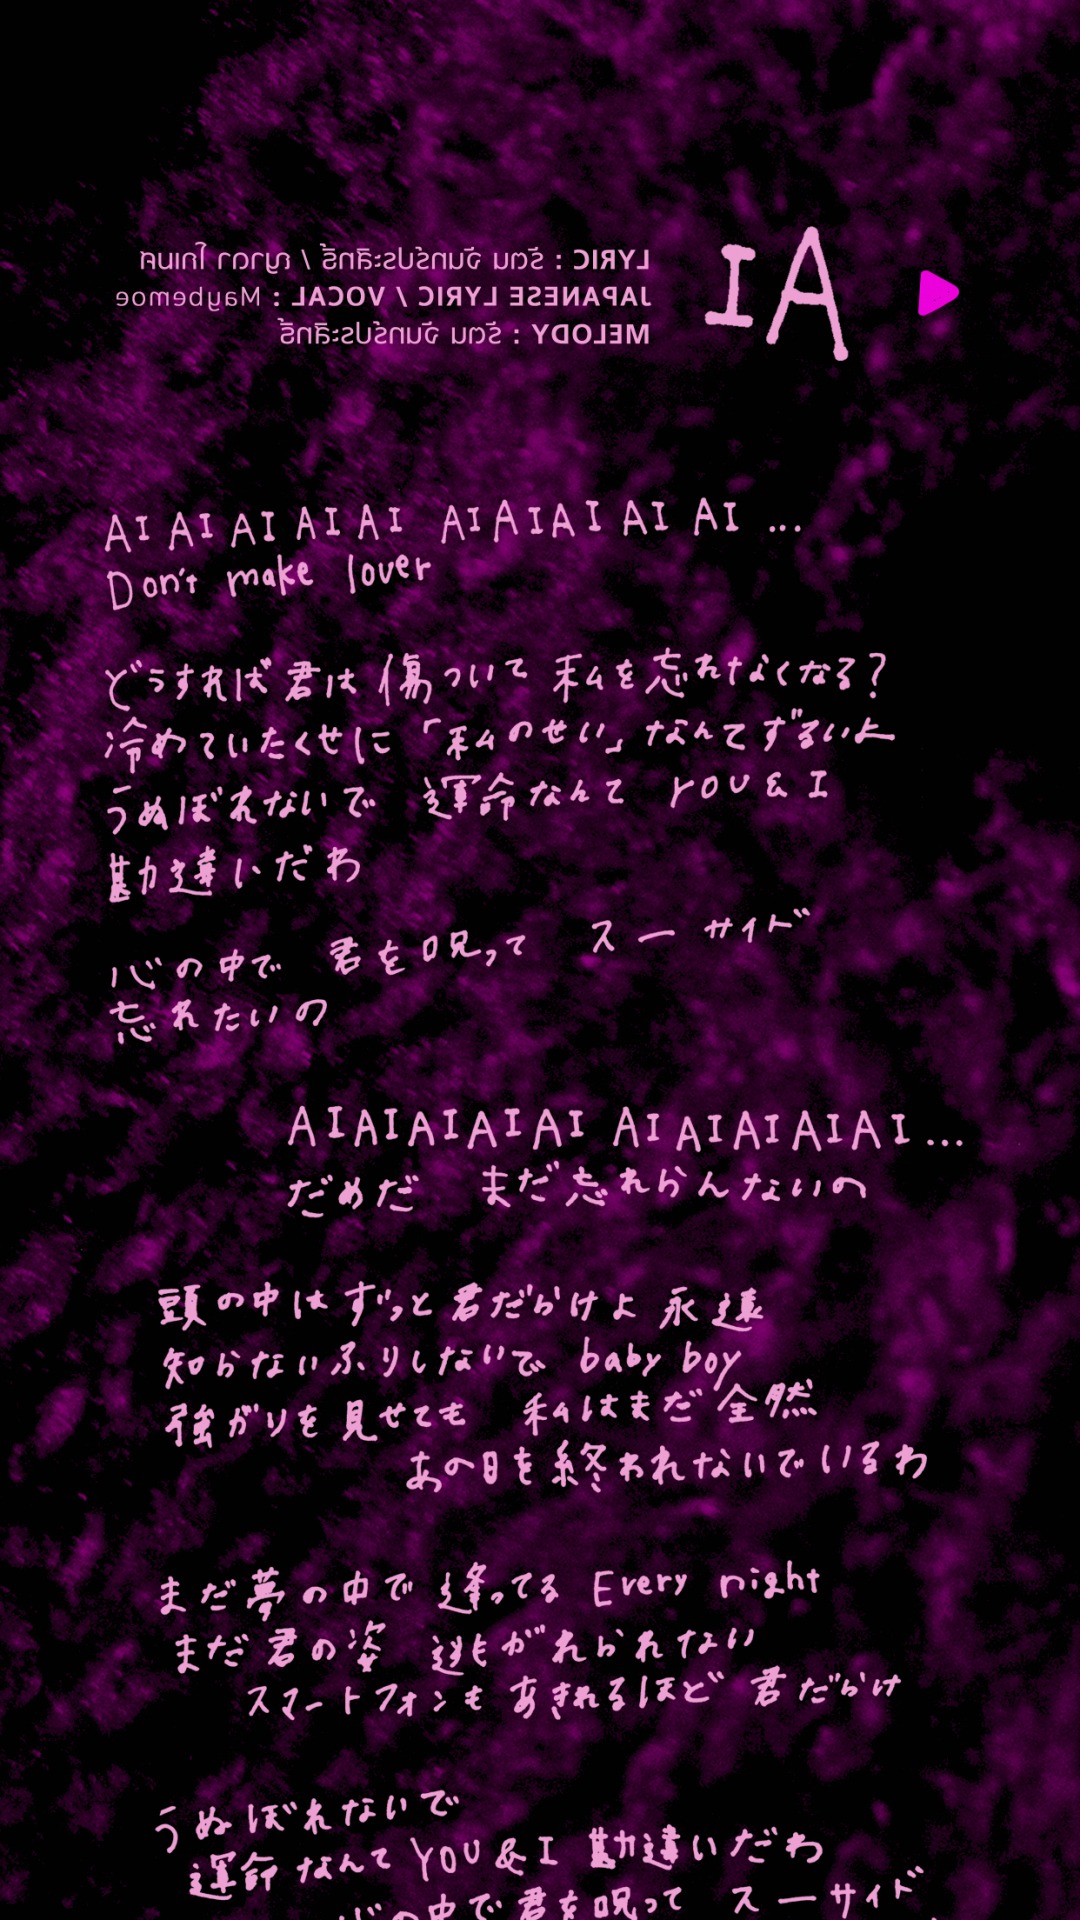 AI
LYRIC : รัตน จันทร์ประสิทธิ์ / ญาดา โกเมศ
JAPANESE LYRIC / VOCAL : Maybemoe
MELODY : รัตน จันทร์ประสิทธิ์
AI AI AI AI AI AI AI AI AI AI ...
Don't make lover
どうすれば君は傷ついて 私を忘れなくなる?
冷めていたくせに「私のせい」なんてずるいよ
うぬぼれないで 運命なんて YOU & I
勘違いだわ
心の中で 君を呪って スーサイド
忘れたいの
AIAIAIAIAI AIAIAIAIAI...
だめだ まだ忘れらんないの
頭の中はずっと君だらけよ 永遠
知らないふりしないで baby boy
強がりを見せても 私はまだ全然
あの日を終われないでいるわ
まだ夢の中で逢ってる Every night
まだ君の姿 逃がれられない
スマートフォンも あきれるほど 君だらけ
うぬぼれないで
運命なんて YOU & I 勘違いだわ
心の中で君を呪って スーサイド